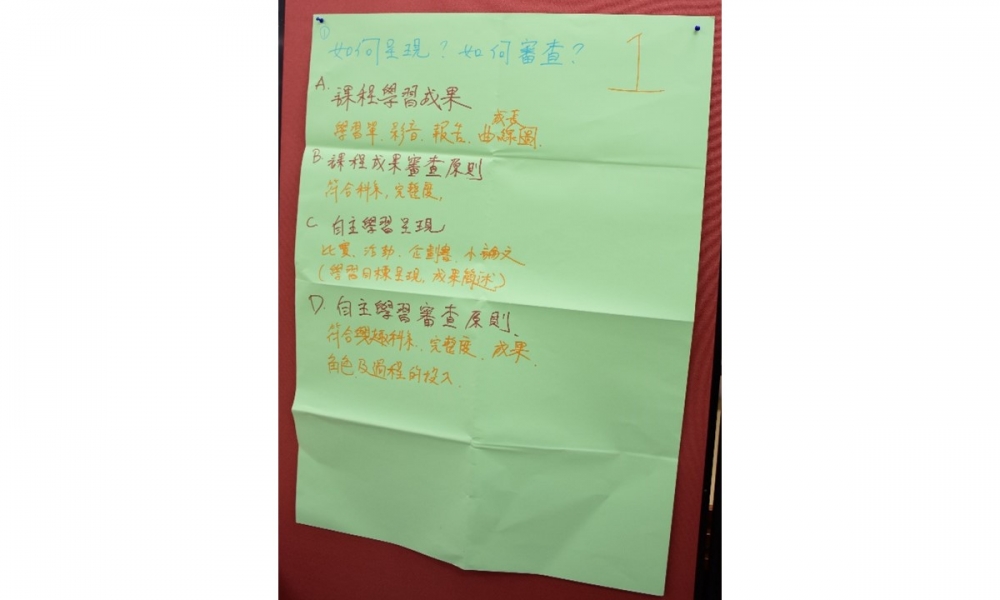 ① 如何呈現？如何審查？
1
A. 課程學習成果
學習單、影音、報告、成長曲線圖.
B 課程成果審查原則
符合科系, 完整度,
C 自主學習呈現
比賽、活動、企劃書、小論文
(學習目標呈現, 成果簡述)
D. 自主學習審查原則.
符合興趣科系、完整度、成果、
角色及過程的投入.